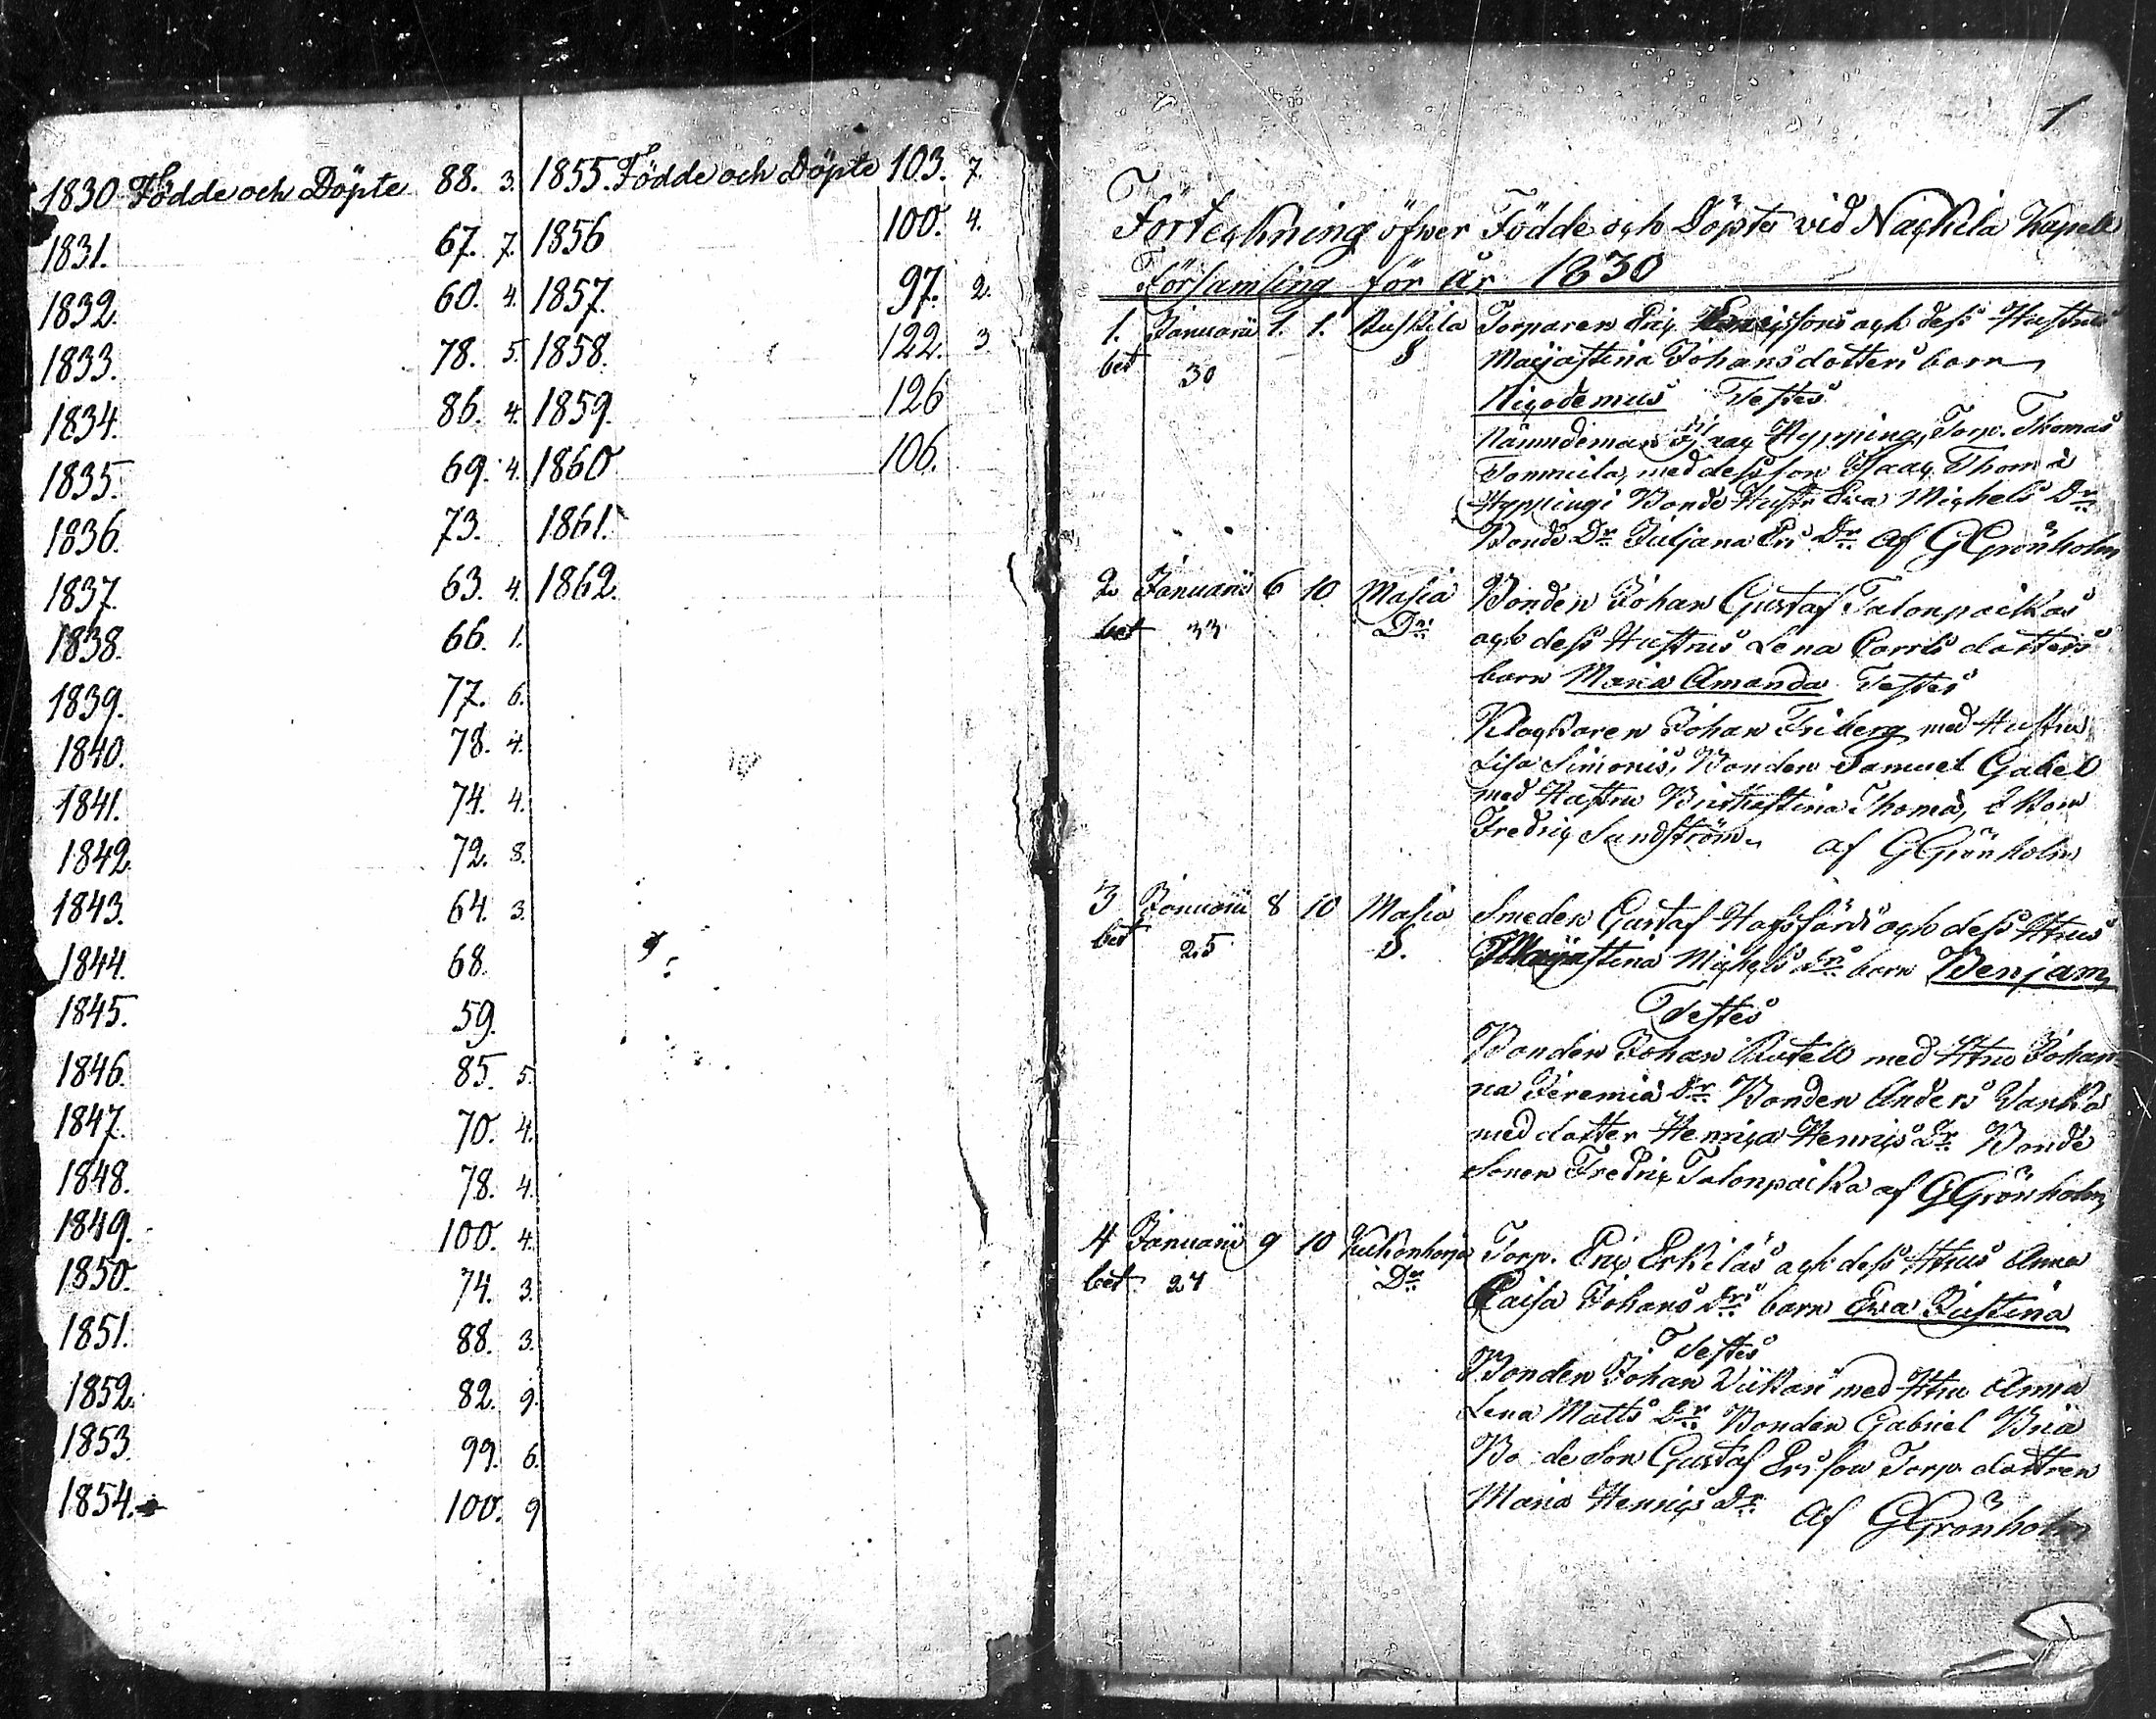 1830 Födde och Döpte 88. 3.
1831. 67. 7.
1832. 60. 4.
1833. 78. 5.
1834. 86. 4.
1835. 69. 4.
1836. 73.
1837. 63. 4.
1838. 66. 1.
1839. 77. 6.
1840. 78. 4.
1841. 74. 4.
1842. 72. 8.
1843. 64. 3.
1844. 68.
1845. 59.
1846. 85. 5.
1847. 70. 4.
1848. 78. 4.
1849. 100. 4.
1850. 74. 3.
1851. 88. 3.
1852. 82. 9.
1853. 99. 6.
1854. 100. 9
1855. Födde och Döpte 103. 7.
1856 100. 4.
1857. 97. 2.
1858. 122. 3
1859. 126
1860 106.
1861.
1862.
1
Förteckning öfwer Födde och Döpte wid Nackila Kapell
Församling för År 1830
1. Januarii 1. 1. Torparen Eric Ericssons och dess Hustrus
bet 30 S Majastina Johansdotters barn
Nicodemus Testes
Nämndeman Isaac Hypping, Torp. Thomas
Tommila, med dess son Isaac Thom
Hyppingi Bonde Hustr Ewa Michels Dr
Bonde Dr Juljana Ers Dr af G Grönholm
2 Januarii 6 10 Masia Bonden Johan Gustaf Talonpoikas
bet 33 Dr och dess Hustrus Lena Carls dotters
barn Maria Amanda Testes
Klockaren Johan Friberg med Hustru
Lisa Simonis, Bonden Samuel Gabel
med Hustru Thomæ,
Fredric Sandström af G Grönholm
3 Januarii 8 10 Masia Smeden Gustaf Hafsfärds och dess Htrus
bet 25 S. Majastina Michels Drs barn Benjam
Testes
Bonden Johan med Htru Johan-
na Jeremiæ Dr Bonden Anders
med dotter Henrica Henrics Dr Bonde
Sonen Fredric Talonpoika af G Grönholm
4 Januarii 9 10 Kukonharja Torp. Eric Erkiläs och dess Htrus Anna
bet 27 Dr Caisa Johans Drs barn Ewa Justina
Testes
Bonden Johan Wiikari med Htru Anna
Lena Matts Dr Bonden Gabriel
Bo de Son Gustaf Ersson Torp. dottren
Maria Henrics Dr af G Grönholm